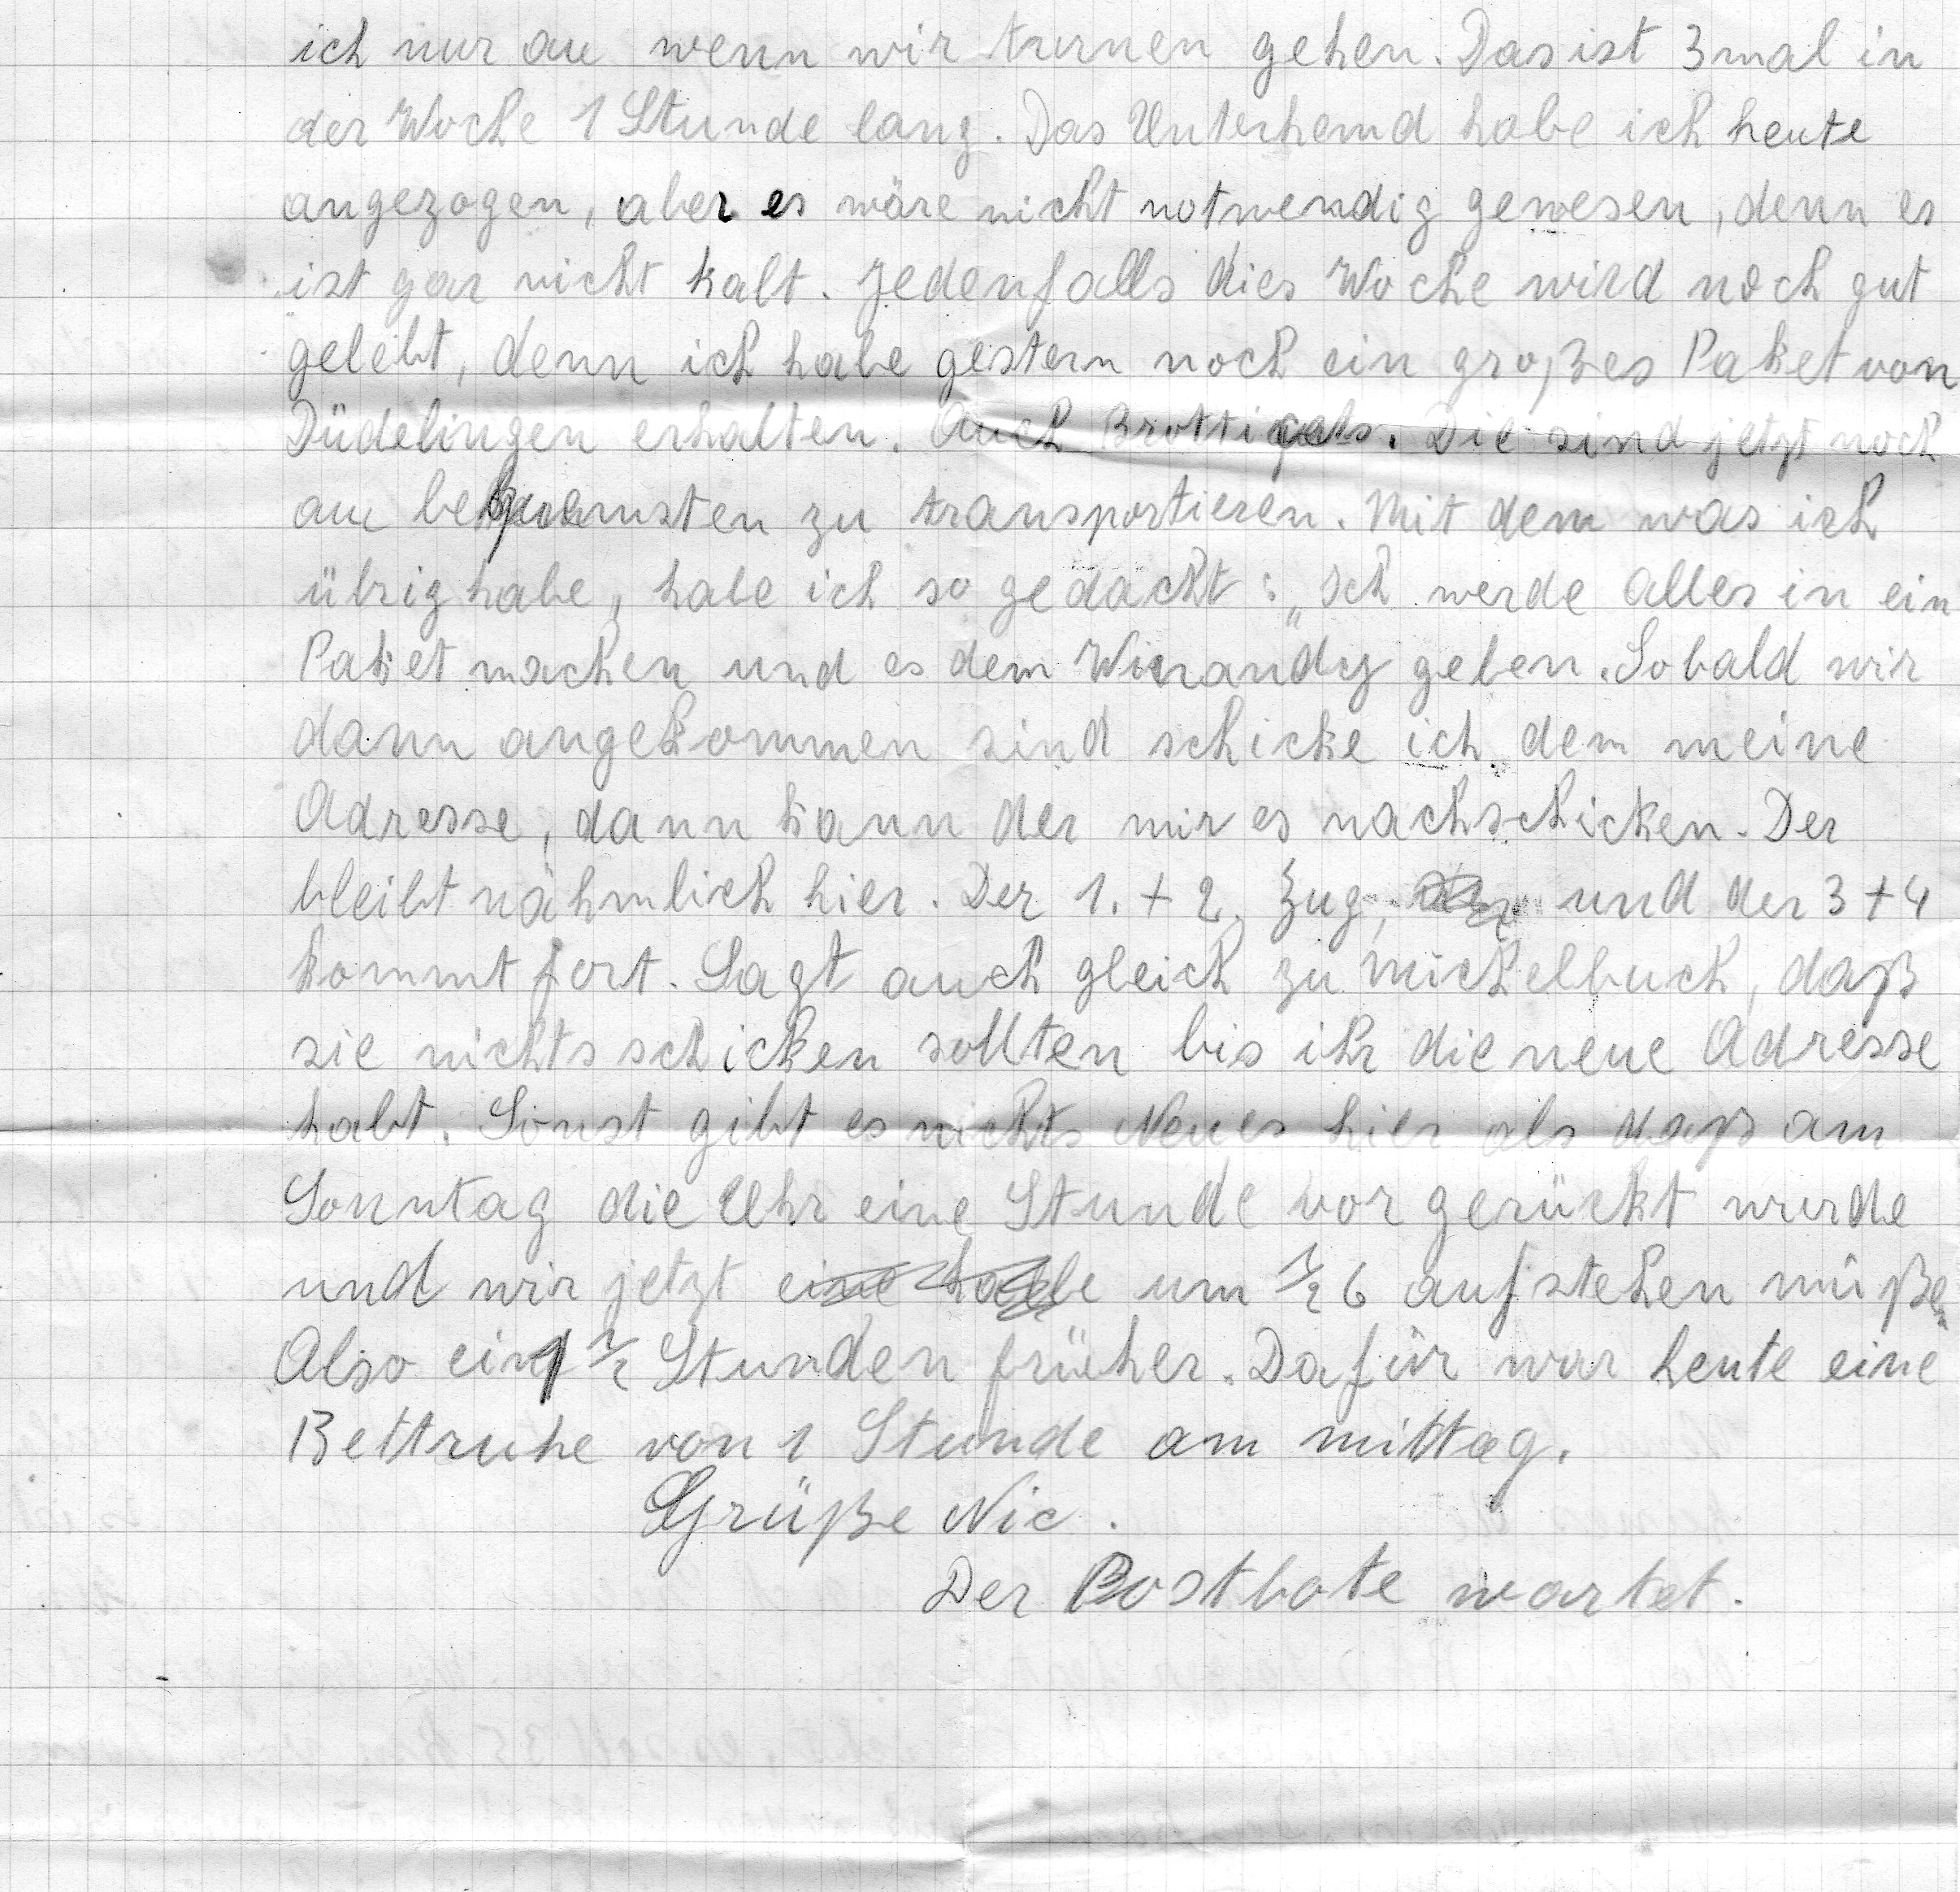 ich nur an wenn wir turnen gehen. Das ist 3 mal in
der Woche 1 Stunde lang. Das Unterhemd habe ich heute
angezogen, aber es wäre nicht notwendig gewesen, denn es
ist gar nicht kalt. Jedenfalls dies Woche wird noch gut
gelebt, denn ich habe gestern noch ein großes Paket von
Düdelingen erhalten. Auch Die sind jetzt noch
am bequemsten zu transportieren. Mit dem was ich
übrig habe, habe ich so gedacht: „Ich werde alles in ein
Paket machen und es dem Winandy geben. Sobald wir
dann angekommen sind schicke ich dem meine
Adresse, dann kann der mir es nachschicken. Der
bleibt nähmlich hier. Der 1. + 2. Zug, und der 3 + 4
kommt fort. Sagt auch gleich zu Michelbuch, daß
sie nichts schicken sollten bis ihr die neue Adresse
habt. Sonst gibt es nichts Neues hier als daß am
Sonntag die Uhr eine Stunde vor gerückt wurde
und wir jetzt eine halbe um 1/2 6 aufstehen müße.
Also 1 1/2 Stunden früher. Dafür war heute eine
Bettruhe von 1 Stunde am mittag.
Grüße Nic.
Der Postbote wartet.